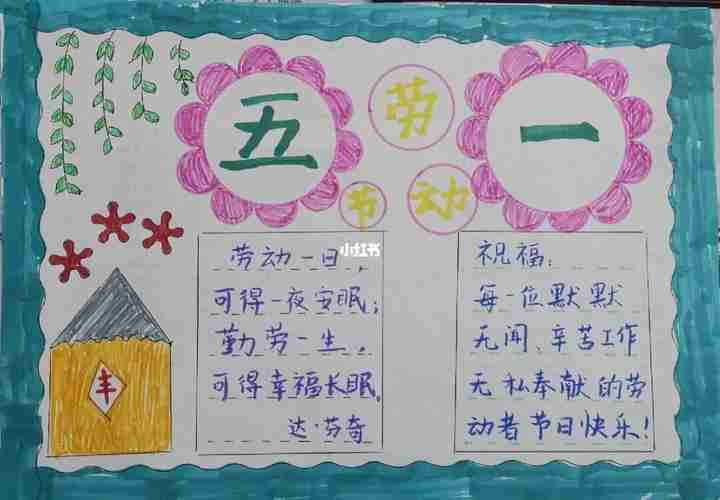 五
劳
一
节
动
小红书
劳动一日，
可得一夜安眠；
勤劳一生，
可得幸福长眠。
达·芬奇
祝福：
每一位默默
无闻、辛苦工作
无私奉献的劳
动者节日快乐！
丰